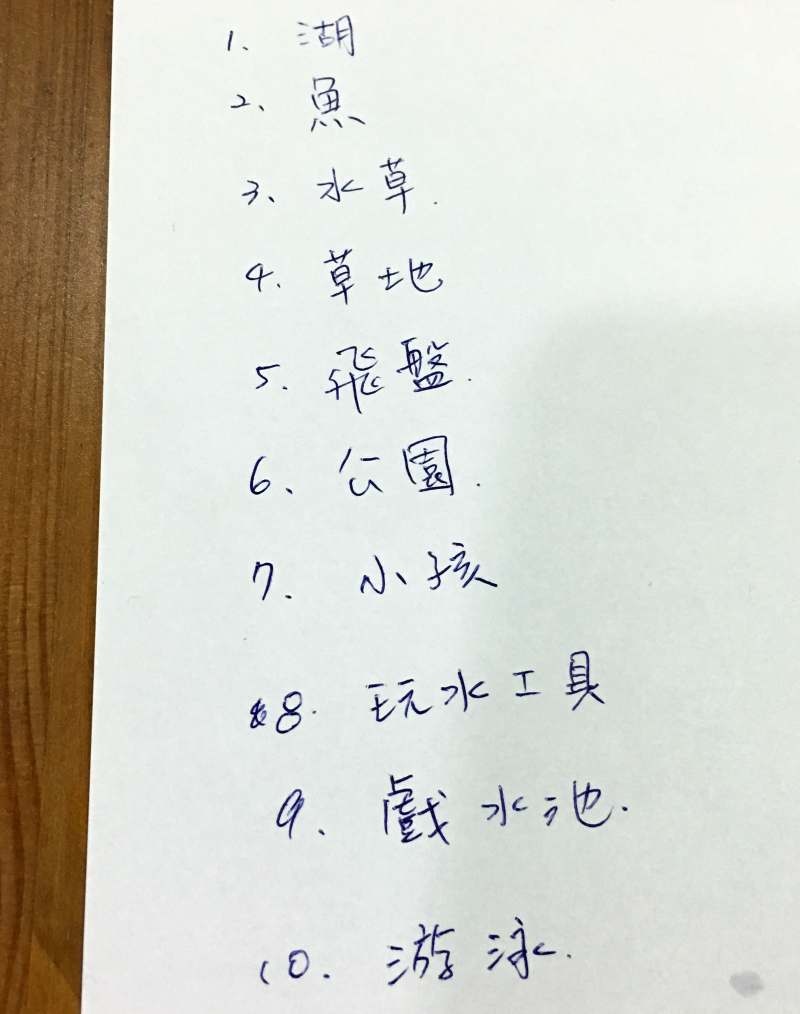 1、湖
2、魚
3、水草.
4.草地
5.飛盤.
6、公園.
7.小孩
8.玩水工具
9.戲水池.
10.游泳.